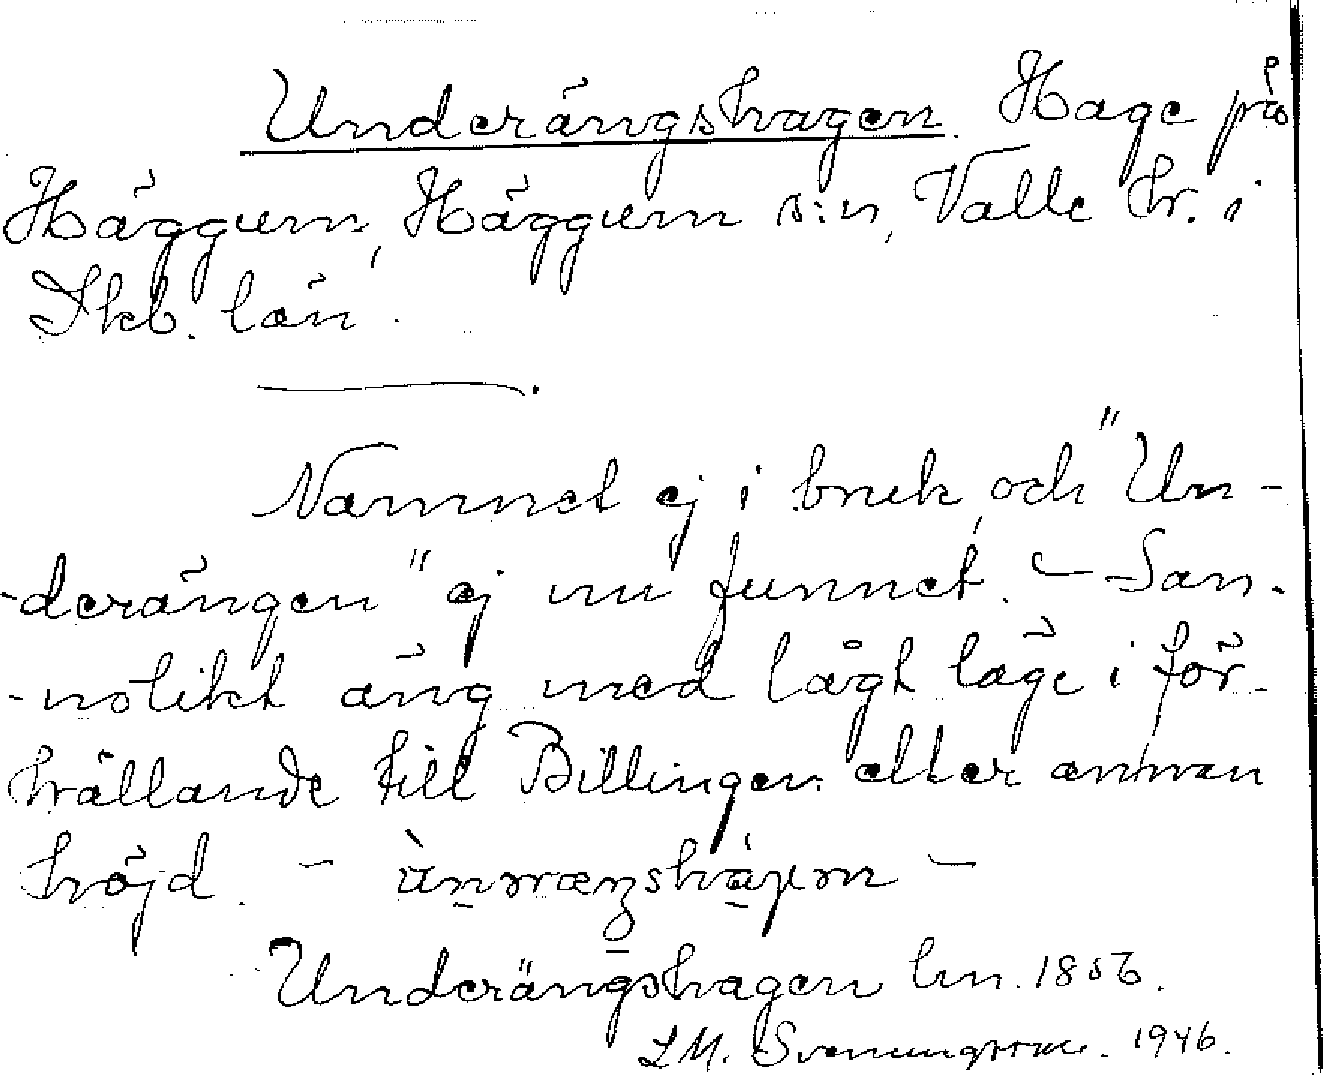 Underängshagen. Hage på
Häggum, Häggum s:n, Valle hr. i
Skb. län.
Namnet ej i bruk, och "Un-
-derängen" ej nu funnet. – San-
-nolikt äng med lågt läge i för-
hållande till Billingen eller annan
höjd. – –
Underängshagen lm. 1856.
LM. Svenungsson. 1946.